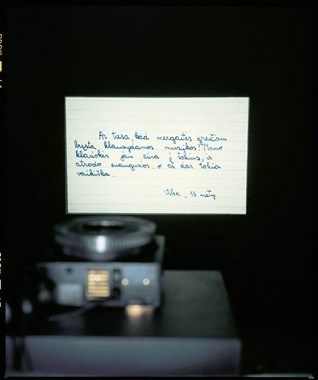 Ar tiesa, kad mergaitės greičiau
bręsta klausydamos muzikos? Mano
klasiokės jau eina į šokius, ir
atrodo suaugusios, o aš dar tokia
vaikiška.
, 13 metų